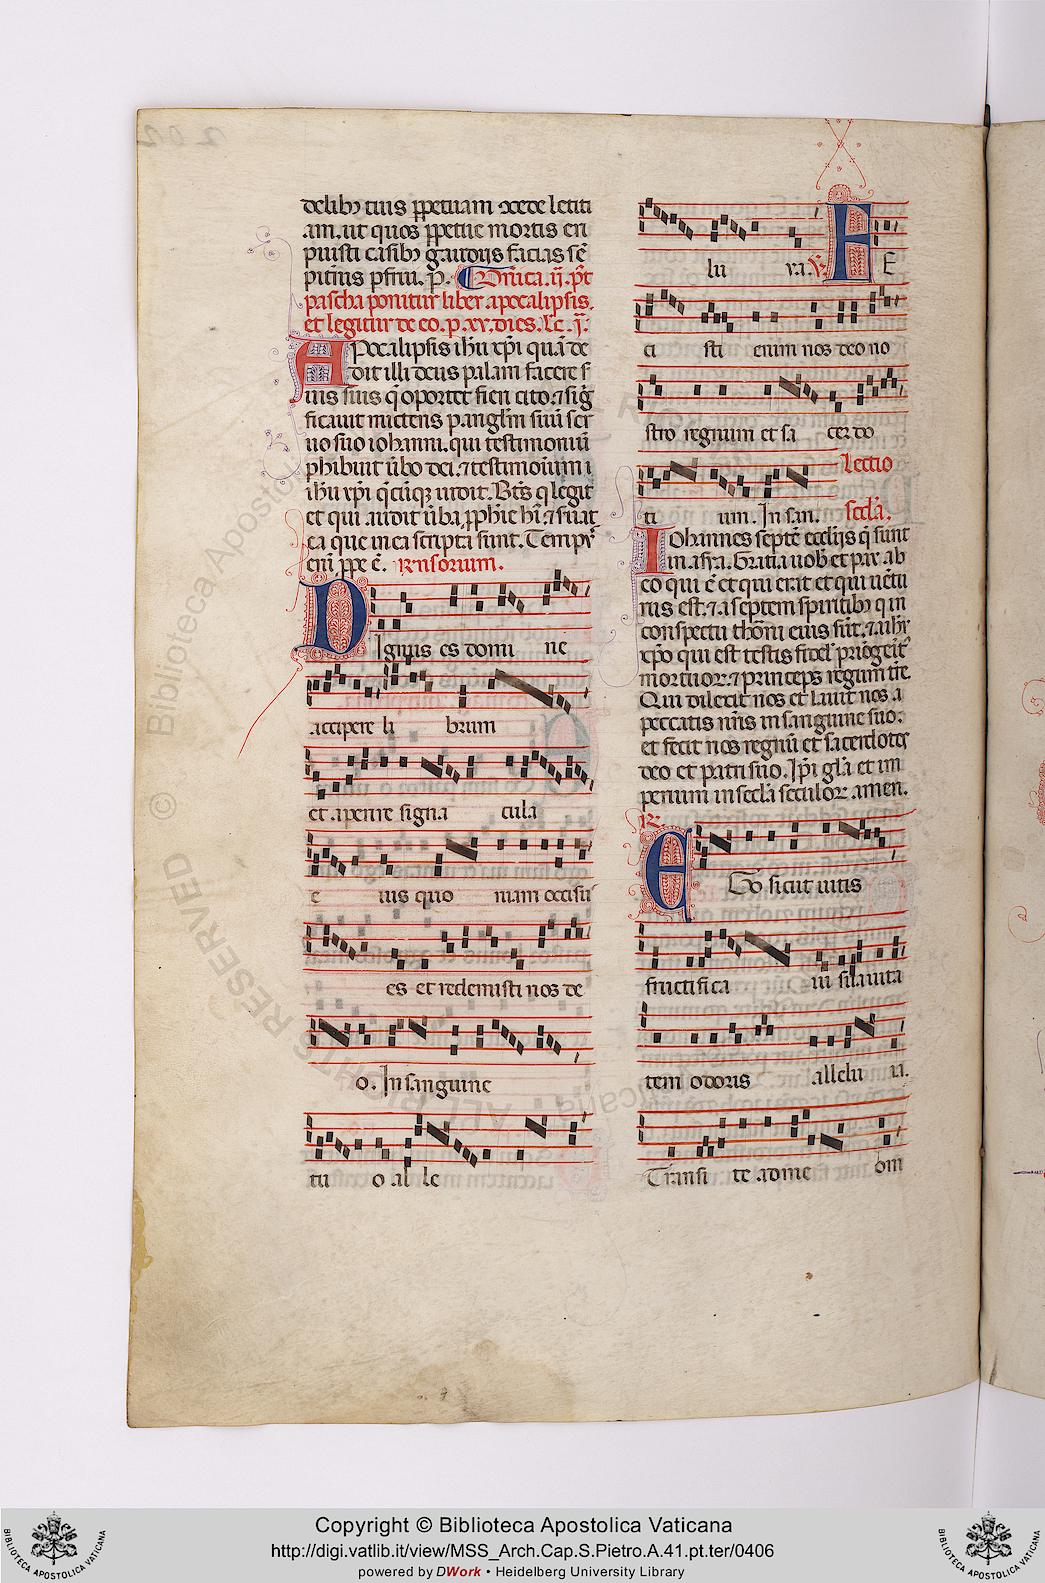 delib; tuis ppetuam ↄcede letiti
am. ut quos ppetue mortis eri
puisti casib; gaudijs facias sẽ
piternis pfrui. p. Dñica .ij. pt̾
pascha ponitur liber apocalipsis.
et legitur de eo. p. xv. dies. lc̃. j̃.
APocalipsis ihũ xp̃i quã de
dit illi deus palam facere s̾
uis suis q̃ oportet fieri cito. ⁊ sig
ficauit mictens p angl̃m suũ ser
uo suo iohanni. qui testimoniũ
phibuit ũbo dei. ⁊ testimoiũm i
ihũ xp̃i q̃cũq; uidit. Bt̃s q legit
et qui audit ũba pphie hĩ. ⁊ s̃uat
ea que in ea scripta sunt. Temp̾
eni ppe ẽ. Rñsorium.
Dignus es domi ne
accipere li brum
et aperire signa cula
e ius quo niam occisũ
es et redemisti nos de
o. In sanguine
tu o al le
lu ya. ℣. FE
ci sti enim nos deo no
stro regnum et sa cerdo
ti um. In san. Lectio
scd̃a.
IOhannes septẽ ecclijs q̃ sunt
in asya. Gratia uob̾ et pax ab
eo qui ẽ et qui erat et qui uẽtu
rus est. ⁊ a septem spiritib; q in
conspectu throni eius sũt. ⁊ ab ihũ
xp̃o qui est testis fidel̾ primogeit̾
mortuor̾. ⁊ princeps regum tr̃e.
Qui dilexit nos et lauit nos a
peccatis nr̃is in sanguine suo:
et fecit nos regnũ et sacerdotes
deo et patri suo. Ip̃i gl̃a et im
perium in secl̃a seculor̾. amen.
℟.
EGo sicut uitis
fructifica ui suauita
tem odoris allelu ia.
Transi te ad me om
Copyright © Biblioteca Apostolica Vaticana
http://digi.vatlib.it/view/MSS_Arch.Cap.S.Pietro.A.41.pt.ter/0406
powered by DWork • Heidelberg University Library